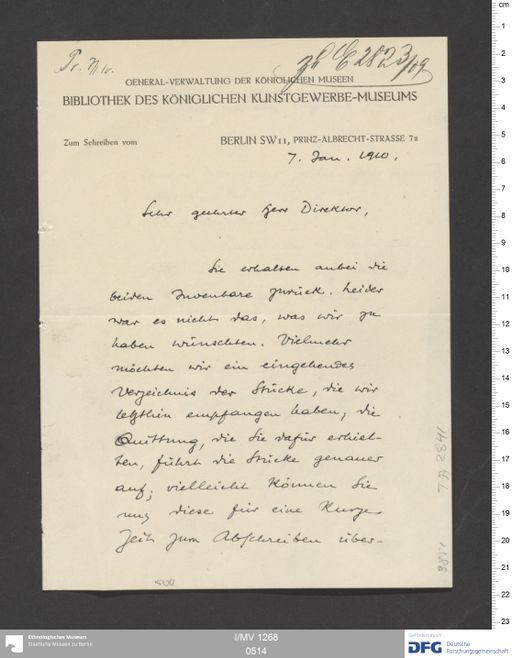 Pr. Nr.
zu E 2823/09
GENERAL-VERWALTUNG DER KÖNIGLICHEN MUSEEN
BIBLIOTHEK DES KÖNIGLICHEN KUNSTGEWERBE-MUSEUMS
Zum Schreiben vom
BERLIN SW11, PRINZ-ALBRECHT-STRASSE 7a
7. Jan. 1910.
Sehr geehrter Herr Direktor,
Sie erhalten anbei die
beiden Inventare zurück. Leider
war es nicht das, was wir zu
haben wünschten. Vielmehr
möchten wir ein eingehendes
Verzeichnis der Stücke, die wir
letzthin empfangen haben; die
Quittung, die Sie dafür erhiel-
ten, führt die Stücke genauer
auf; vielleicht können Sie
uns diese für eine kurze
Zeit zum Abschreiben über-
I A 2841
Ethnologisches Museum
Staatliche Museen zu Berlin
I/MV 1268
0514
Gefördert durch
DFG
Deutsche
Forschungsgemeinschaft
cm
1
2
3
4
5
6
7
8
9
10
11
12
13
14
15
16
17
18
19
20
21
22
23